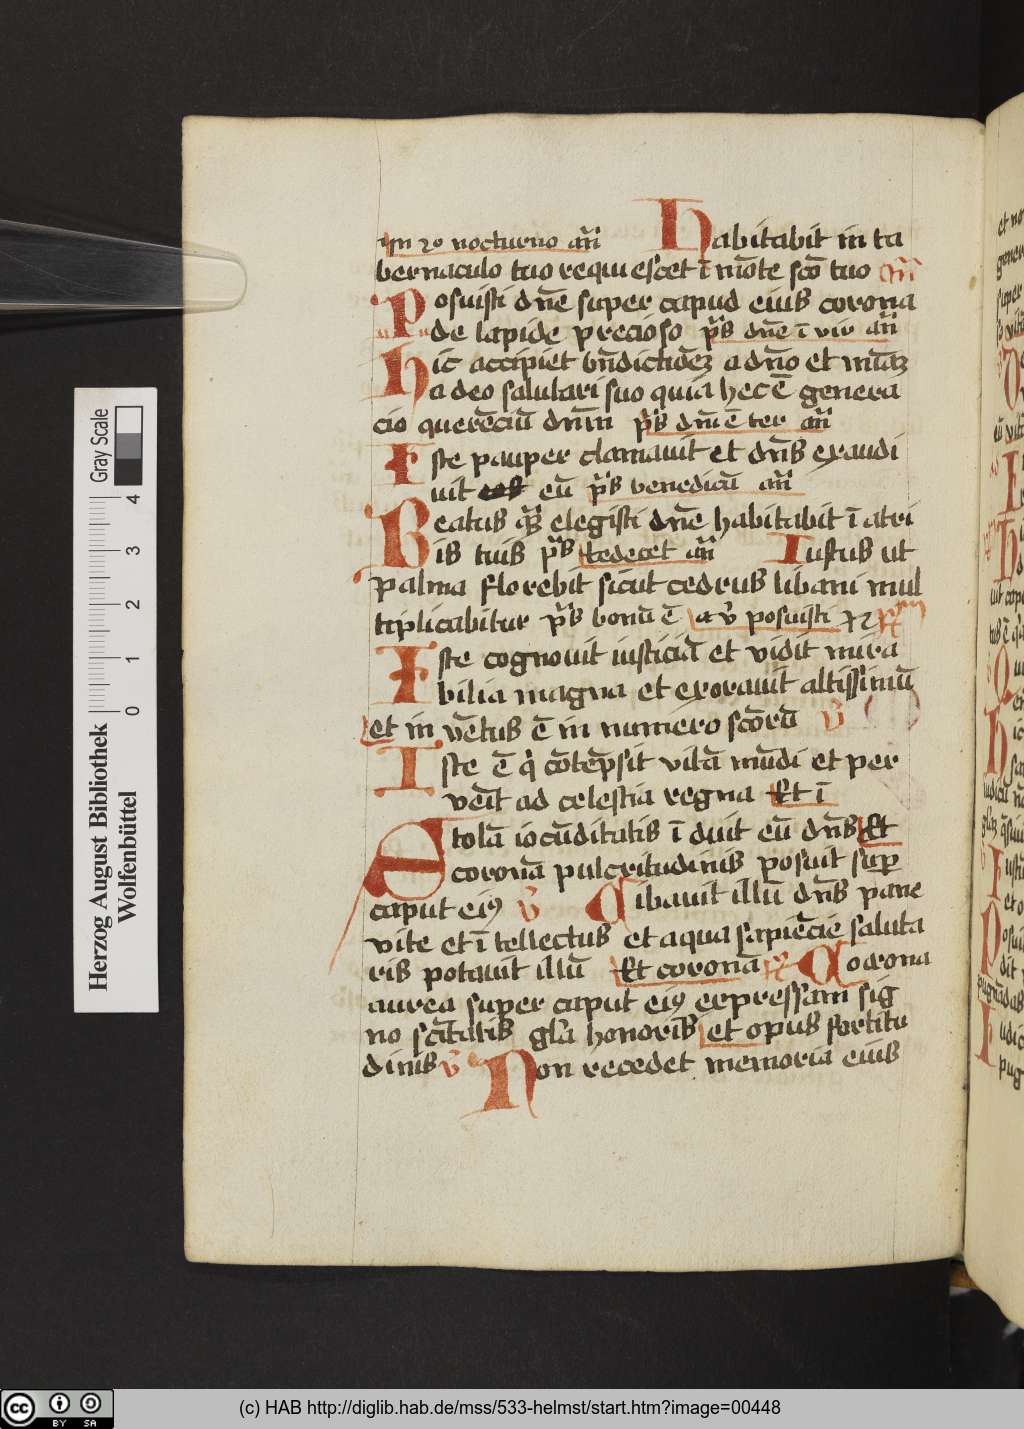 In 2o nocturno añ Habitabit in ta
bernaculo tuo requiescet ī mōte scō tuo añ
Posuisti dn̄e super capud eius corona
de lapide precioso p̄s dn̄e ī vir añ
Hic accipiet bn̄dictiōeꝫ a dn̄o et miāꝫ
a deo salutari suo quia hec ē genera
cio querēciū dn̄m p̄s dn̄i ē ter añ
Iste pauper clamauit et dn̄s exaudi
uit eū p̄s benedicā añ
Beatus quē elegisti dn̄e habitabit ī atri
is tuis p̄s te decet añ Iustus ut
palma florebit sicut cedrus libani mul
tiplicabitur p̄s bonū ē a ℣ posuisti
Iste cognouit iusticiā et vidit mira
bilia magna et exorauit altissimū
et in vētus ē in numero scōrū ℣
Iste ē qi cōtēpsit vitā mūdi et per
veīt ad celestia regna Et ī
Stolā iocūditatis ī duit eū dn̄s Et
coronā pulcritudinis posuit suꝑ
caput eiꝯ ℣ Cibauit illū dn̄s pane
vite et ī tellectus et aqua sapiēcie saluta
ris potauit illū Et coronā ℟ Corona
aurea super caput eiꝯ expressam sig
no scītatis gl̄a honoris et opus fortitu
dinis ℣ Non recedet memoria eius
Herzog August Bibliothek
Wolfenbüttel
Gray Scale
0 1 2 3 4
cc BY SA
(c) HAB http://diglib.hab.de/mss/533-helmst/start.htm?image=00448